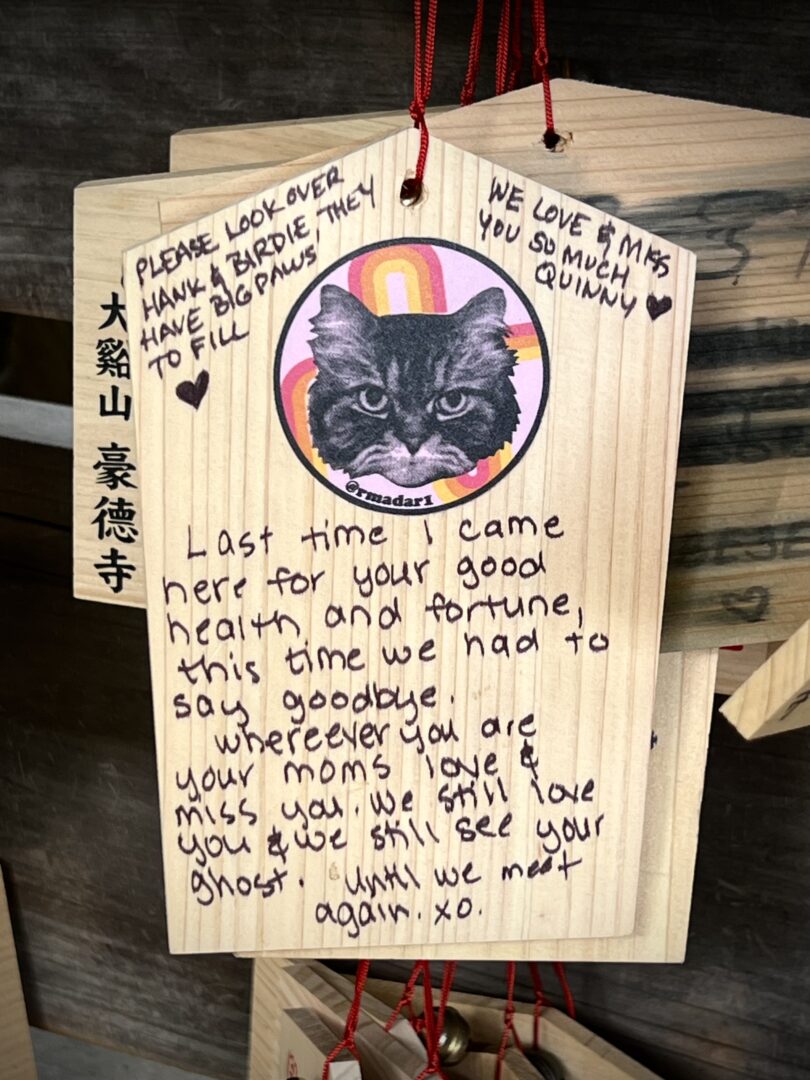 PLEASE LOOK OVER
HANK & BIRDIE, THEY
HAVE BIG PAWS
TO FILL
♥
WE LOVE & MISS
YOU SO MUCH
QUINNY ♥
@rmadar1
Last time I came
here for your good
health and fortune,
this time we had to
say goodbye.
whereever you are
your moms love &
miss you. we still love
you & we still see your
ghost. until we meet
again. xo.
大谿山 豪徳寺